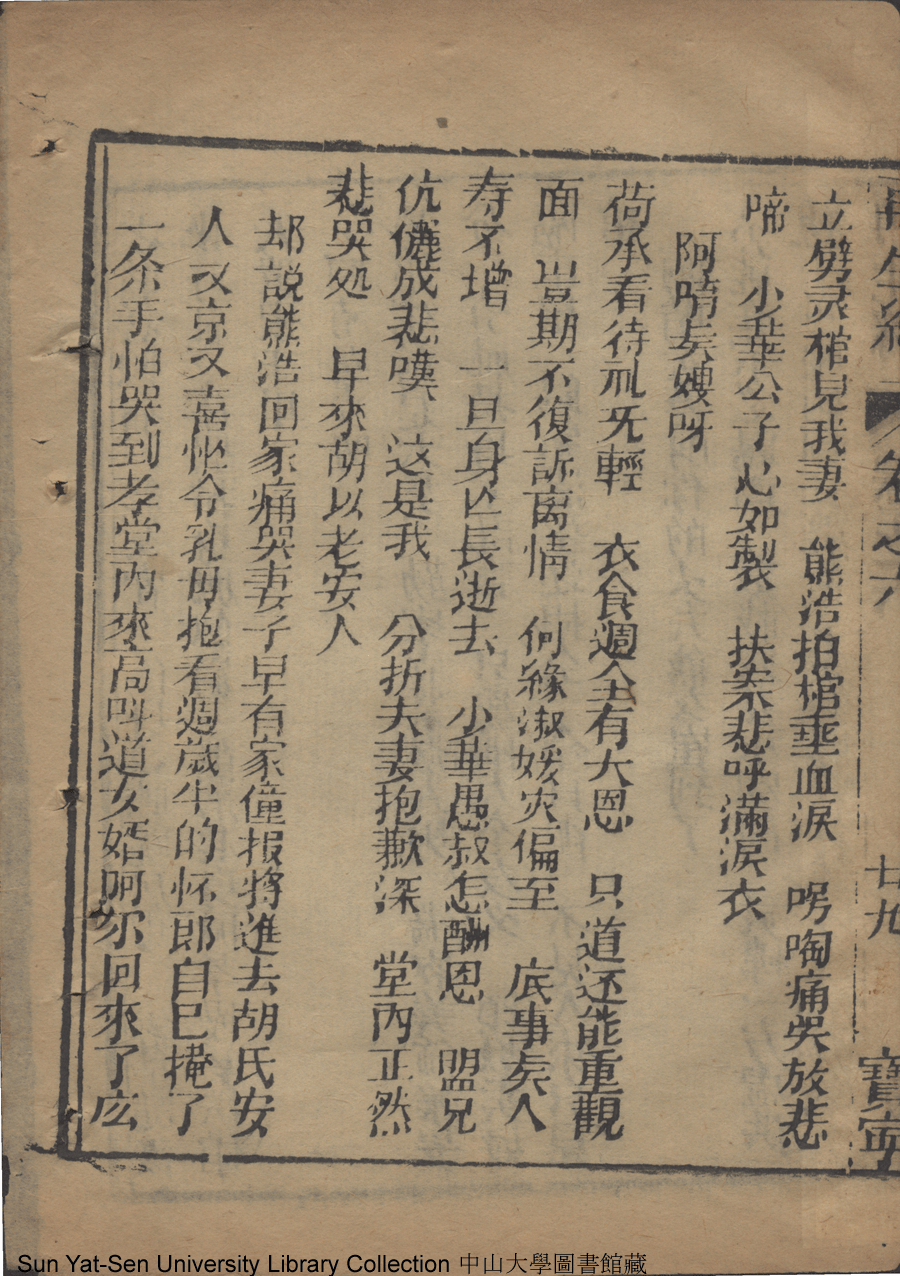 再生緣 卷之六 廿九 寳寧
立劈灵棺見我妻 熊浩拍棺垂血淚 呺啕痛哭放悲
啼 少華公子心如製 扶案悲呼滿淚衣
阿唷矣嫂呀
荷承看待礼旡輕 衣食週全有大恩 只道还能重觀
面 豈期不復訴离情 何緣淑媛灾偏至 底事矣人
寿不增 一旦身亾長逝去 少華愚叔怎酬恩 盟兄
伉儷成悲嘆 这是我 分折夫妻抱歉深 堂內正然
悲哭処 早來胡以老安人
却説熊浩回家痛哭妻子早有家僮报將進去胡氏安
人又京又喜忙令乳母抱看週歲半的怀郎自已掩了
一条手怕哭到孝堂內來高叫道女婿呵尔回來了庅
Sun Yat-Sen University Library Collection 中山大學圖書館藏